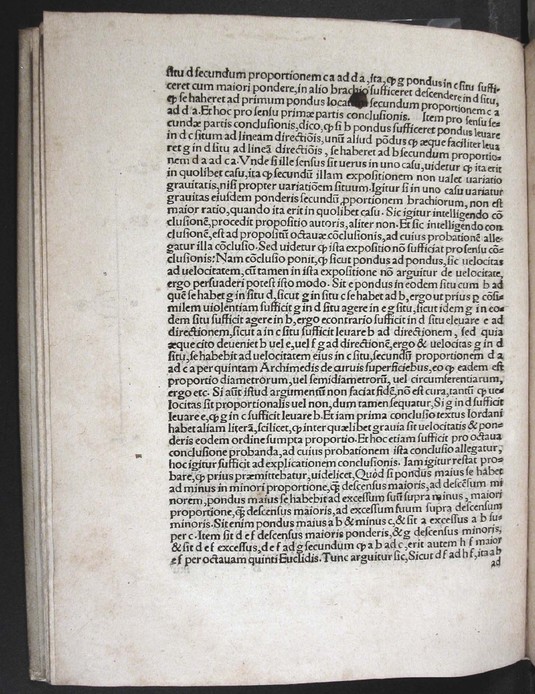 situ d secundum proportionem c a ad d a, ita, ꝙ g pondus in c situ suffi-
ceret cum maiori pondere, in alio brachio sufficeret descendere in d situ,
ꝙ se haberet ad primum pondus secundum proportionem c a
ad d a. Et hoc pro sensu primæ partis conclusionis. Item pro sensu se-
cundæ partis conclusionis, dico, ꝙ si b pondus sufficeret pondus leuare
in d c situm ad lineam directiōis, unū aliud pōdus ꝙ æque faciliter leua
ret g in d situ ad lineā directiōis, se haberet ad b secundum proportio-
nem d a ad c a. Vnde si ille sensus sit uerus in uno casu, uidetur ꝙ ita erit
in quolibet casu, ita ꝙ secundū illam expositionem non ualet uariatio
grauitatis, nisi propter uariatiōem situum. Igitur si in uno casu uariatur
grauitas eiusdem ponderis secundū, ꝓportionem brachiorum, non est
maior ratio, quando ita erit in quolibet casu. Sic igitur intelligendo cō
clusionē, procedit propositio autoris, aliter non. Et sic intelligendo con
clusionē, est ad propositū octauæ cōclusionis, ad cuius probationē alle-
gatur illa cōclusio. Sed uidetur ꝙ ista expositio nō sufficiat pro sensu cō=
clusionis: Nam cōclusio ponit, ꝙ sicut pondus ad pondus, sic uelocitas
ad uelocitatem, cū tamen in ista expositione nō arguitur de uelocitate,
ergo persuaderi potest isto modo. Sit e pondus in eodem situ cum b ad
quē se habet g in situ d, sicut g in situ c se habet ad b, ergo ut prius g cōsi-
milem uiolentiam sufficit g in d situ agere in e g situ, sicut idem g in eo=
dem situ sufficit agere in b, ergo econtrario sufficit in d situ eleuare e ad
directionem, sicut a in c situ sufficit leuare b ad directionem, sed quia
æque cito deueniet b uel e, uel f g ad directionē, ergo & uelocitas g in d
situ, se habebit ad uelocitatem eius in c situ, secundū proportionem d a
ad c a per quintam Archimedis de curuis superficiebus, eo ꝙ eadem est
proportio diametrorum, uel semidiametrorū, uel circumferentiarum,
ergo etc. Si aūt istud argumentū non faciat fidē, nō est cura, tantū ꝙ ue=
locitas sit proportionalis uel non, dum tamen sequatur, Si g in d sufficit
leuare e, ꝙ g in c sufficit leuare b. Et iam prima conclusio textus Iordani
habet aliam literā, scilicet, ꝙ inter quælibet grauia sit uelocitatis & pon=
deris eodem ordine sumpta proportio. Et hoc etiam sufficit pro octaua
conclusione probanda, ad cuius probationem ista conclusio allegatur,
hoc igitur sufficit ad explicationem conclusionis. Iam igitur restat pro=
bare, ꝙ prius præmittebatur, uidelicet, Quòd si pondus maius se habet
ad minus in minori proportione, q̄ descensus maioris, ad descēsum mi
norem, pondus maius se habebit ad excessum suū supra minus, maiori
proportione, q̄ descensus maioris, ad excessum suum supra descensum
minoris. Sit enim pondus maius a b & minus c, & sit a excessus a b su-
per c. Item sit d e f descensus maioris ponderis, & g descensus minoris,
& sit d e f excessus, d e f ad g secundum ꝙ a b ad c, erit autem h f maior
e f per octauam quinti Euclidis. Tunc arguitur sic, Sicut d f ad h f, ita a b
ad